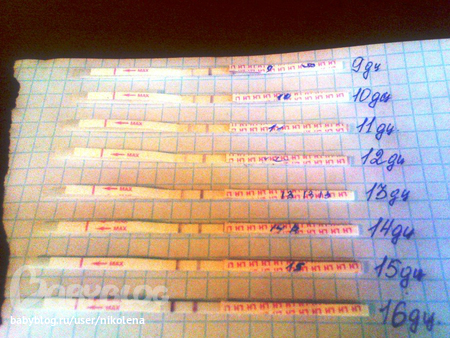 MAX 9 9дц
MAX 10 10дц
MAX 11дц
MAX 12дц
MAX 13 13 13 13дц
MAX 14 14дц
MAX 15 15дц
BABYBLOG
16дц.
babyblog.ru/user/nikolena